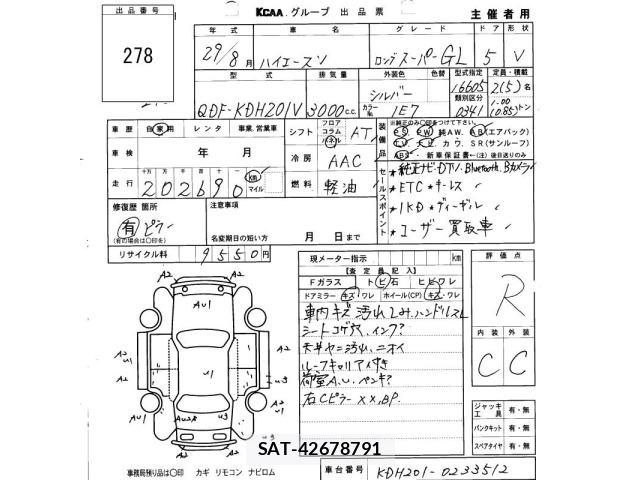 出品番号
278
KCAA グループ 出品票
主催者用
年式 車名 グレード ドア 形状
29/8月 ハイエースV ロングスーパーGL 5 V
型式 排気量 外装色 色替 型式指定 定員・積載
QDF-KDH201V 3000c.c. シルバー 16605 2(5)名
カラーNo. 1E7 類別区分 0341 1.00 (0.85)トン
車歴 自家用 レンタ 事業.営業車
シフト フロア コラム パネル AT
車検 年 月
冷房 AAC
走行 十万 万 千 百 十 一
202690 km マイル
燃料 軽油
装備品
※純正のみ○印をつけて下さい.
PS. PW. 純AW. AB(エアバック)
TV. ナビ. カワ. SR(サンルーフ)
ABS. 新車保証書←(注)後日送りのみ
セールスポイント
*純正ナビ・DTV・Bluetooth.Bカメラ
*ETC *キーレス
*1KD *ディーゼル
*ユーザー買取車
修復歴 箇所
有 ピラー
(有の場合は○印を)
注意事項
名変期日の短い方 月 日まで
リサイクル料 9550円
現メーター指示 km
【査定員記入】
Fガラス トビ石 ヒビワレ
ドアミラー キズ・ワレ ホイール(CP) キズ・ワレ
車内キズ汚れ凹み.ハンドルスレ
シートコゲ穴.インク?
天井ヤニ汚れ.ニオイ
ルーフキャリア付き
荷室A.U.ペンキ?
右Cピラー××,BP.
評価点
R
内装 外装
C C
ジャッキ工具 有・無
パンクキット 有・無
スペアタイヤ 有・無
A2 A2
AU1
A2
A2
U1
A2
U1
A2
U3
AU2R U3
A2 A2
U3
SAT-42678791
事務局預り品は○印 カギ リモコン ナビロム
車台番号 KDH201-0233512